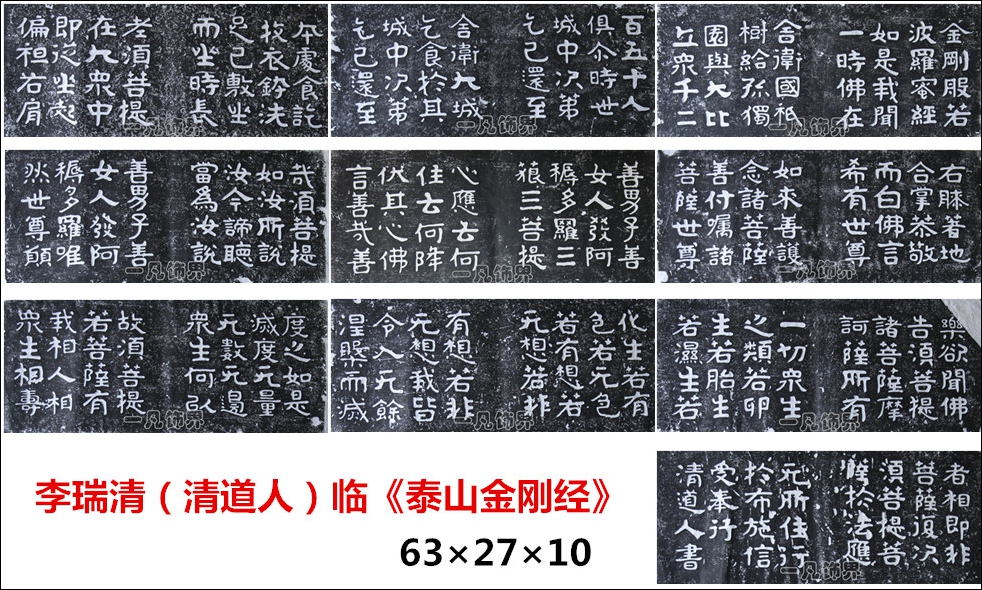 金剛般若
波羅蜜經
如是我聞
一時佛在
舍衛國祇
樹給孤獨
園與大比
丘眾千二
百五十人
俱尒時世
城中次弟
乞已還至
舍衛大城
乞食於其
城中次弟
乞已還至
本處食訖
收衣鉢洗
足已敷坐
而坐時長
老湏菩提
在大眾中
即從坐起
偏袒右肩
右膝著地
合掌恭敬
而白佛言
希有世尊
如來善護
念諸菩薩
善付囑諸
菩薩世尊
善男子善
女人發阿
耨多羅三
狼三菩提
心應云何
住云何降
伏其心佛
言善哉善
哉湏菩提
如汝所說
汝今諦聽
當為汝說
善男子善
女人發阿
耨多羅唯
然世尊願
樂欲聞佛
告湏菩提
諸菩薩摩
訶薩所有
一切眾生
之類若卵
生若胎生
若濕生若
化生若有
色若无色
若有想若
无想若非
有想若非
无想我皆
令入无餘
涅槃而滅
度之如是
滅度无量
无數无邊
眾生何以
故湏菩提
若菩薩有
我相人相
眾生相壽
者相即非
菩薩復次
湏菩提菩
薩於法應
无所住行
於布施信
受奉行
清道人書
一凡饰界
李瑞清（清道人）临《泰山金刚经》
63×27×10